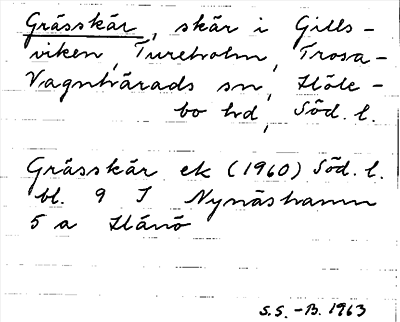 Grässkär, skär i Gills-
viken, Tureholm, Trosa-
Vagnhärads sn, Höle-
bo hd, Söd. l.
Grässkär ek (1960) Söd. l.
bl. 9 I Nynäshamn
5 a Hånö
S.S. -B. 1963